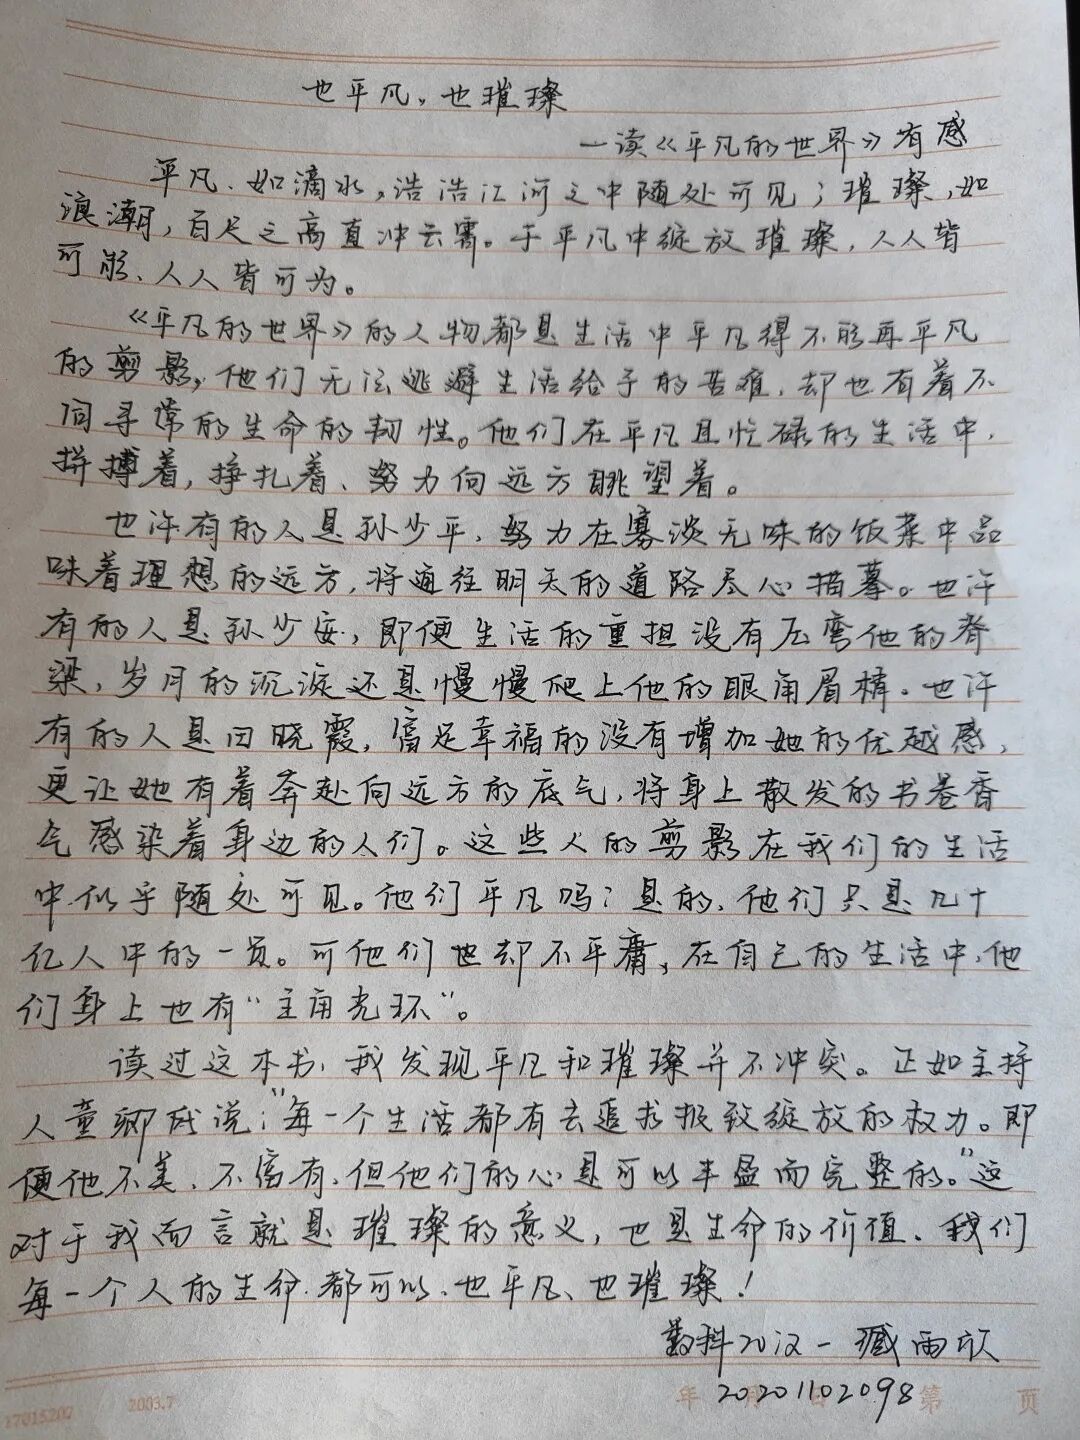 也平凡，也璀璨
—读《平凡的世界》有感
平凡、如滴水，浩浩江河之中随处可见；璀璨，如
浪潮，百尺之高直冲云霄。于平凡中绽放璀璨，人人皆
可能、人人皆可为。
《平凡的世界》的人物都是生活中平凡得不能再平凡
的剪影，他们无法逃避生活给予的苦难，却也有着不
同寻常的生命的韧性。他们在平凡且忙碌的生活中，
拼搏着，挣扎着、努力向远方眺望着。
也许有的人是孙少平，努力在寡淡无味的饭菜中品
味着理想的远方，将通往明天的道路尽心描摹。也许
有的人是孙少安，即便生活的重担没有压弯他的脊
梁，岁月的沉淀还是慢慢爬上他的眼角眉梢。也许
有的人是田晓霞，富足幸福的没有增加她的优越感，
更让她有着奔赴向远方的底气，将身上散发的书卷香
气感染着身边的人们。这些人的剪影在我们的生活
中似乎随处可见。他们平凡吗？是的，他们只是几十
亿人中的一员。可他们也却不平庸，在自己的生活中，他
们身上也有“主角光环”。
读过这本书，我发现平凡和璀璨并不冲突。正如主持
人董卿所说：“每一个生活都有去追求极致绽放的权力。即
便他不美、不富有，但他们的心是可以丰盈而完整的。”这
对于我而言就是璀璨的意义，也是生命的价值、我们
每一个人的生命，都可以、也平凡、也璀璨！
数科20汉一 臧雨欣
20201102098
年 月 日 第 页
17015207 2003.7